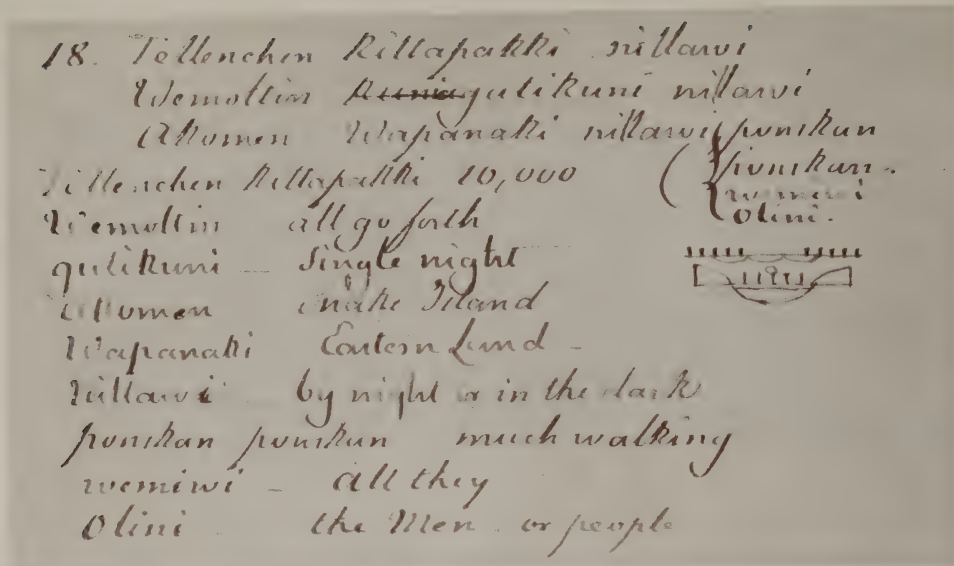 18. Tellenchen Kittapakki nillawi
Wemoltin gutikuni nillawi
Akomen Wapanaki nillawi ponskan
ponskan.
wemiwi
Olini.
Tellenchen Kittapakki 10,000
Wemoltin all go forth
gutikuni - Single night
Akomen Snake Island
Wapanaki Eastern Land -
nillawi by night or in the dark
ponskan ponskun much walking
wemiwi - all they
Olini the Men or people